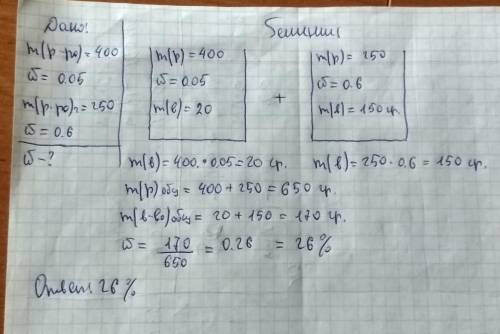 Дано:
m(р-ра)=400
ω=0.05
m(р-ра)₂=250
ω=0.6
ω-?
m(р)=400
ω=0.05
m(в)=20
+
m(р)=250
ω=0.6
m(в)=150 гр.
m(в)=400·0.05=20 гр.
m(в)=250·0.6=150 гр.
m(р)общ=400+250=650 гр.
m(в-ва)общ=20+150=170 гр.
ω=170/650=0.26=26%
Ответ: 26%